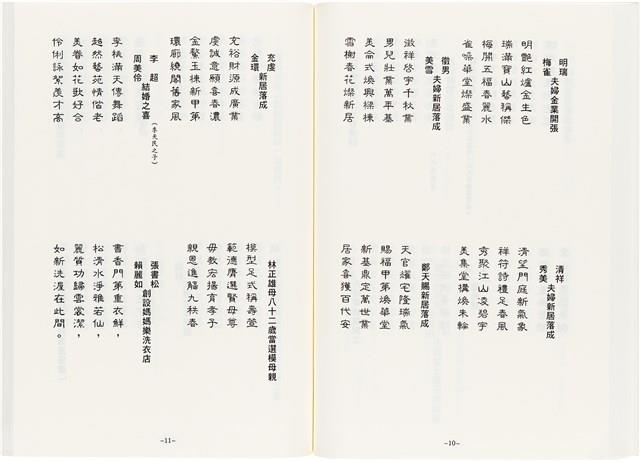 明瑞
梅雀 夫婦金業開張
明艷紅爐金生色
瑞滿寶山藝稱傑
梅開五福春麗水
雀噪華堂燦盛業
徵男
美雪 夫婦新居落成
徵祥啓宇千秋業
男兒壯業萬年基
美侖式煥興樑棟
雪樹春花燦新居
清祥
秀美 夫婦新居落成
清望門庭新氣象
祥符詩禮足春風
秀聚江山凌碧宇
美集堂構煥朱輪
鄭天賜新居落成
天官燿宅隆瑞氣
賜福甲第煥華堂
新基鼎定萬世業
居家喜獲百代安
-10-
充虔
金環 新居落成
充裕財源成廣業
虔誠意願喜春濃
金鰲玉棟新甲第
環廊繞閣舊家風
李超
周美伶 結婚之喜（李天民之子）
李桃滿天傳舞蹈
超然藝苑情偕老
美眷如花歌好合
伶俐詠絮羨才高
林正雄母八十二歲當選模母親
模型足式稱壽萱
範德膺選賢母尊
毋教宏揚育孝子
親恩進觴九秩春
張書松
賴麗如 創設媽媽樂洗衣店
書香門第重衣鮮，
松清水淨雅若仙，
麗質功歸雲裳潔，
如新洗渥在此間。
-11-